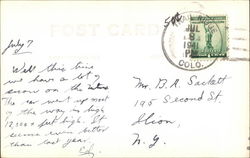 POST CARD
July 7
Well this time
we have a lot of
snow on the
The car went up most
of the way is high
12,000 + feet high. It
seems even better
than last year.
JUL
8
1941
COLO.
Mr. B. R. Sackett
195 Second St.
Ilion
N. Y.